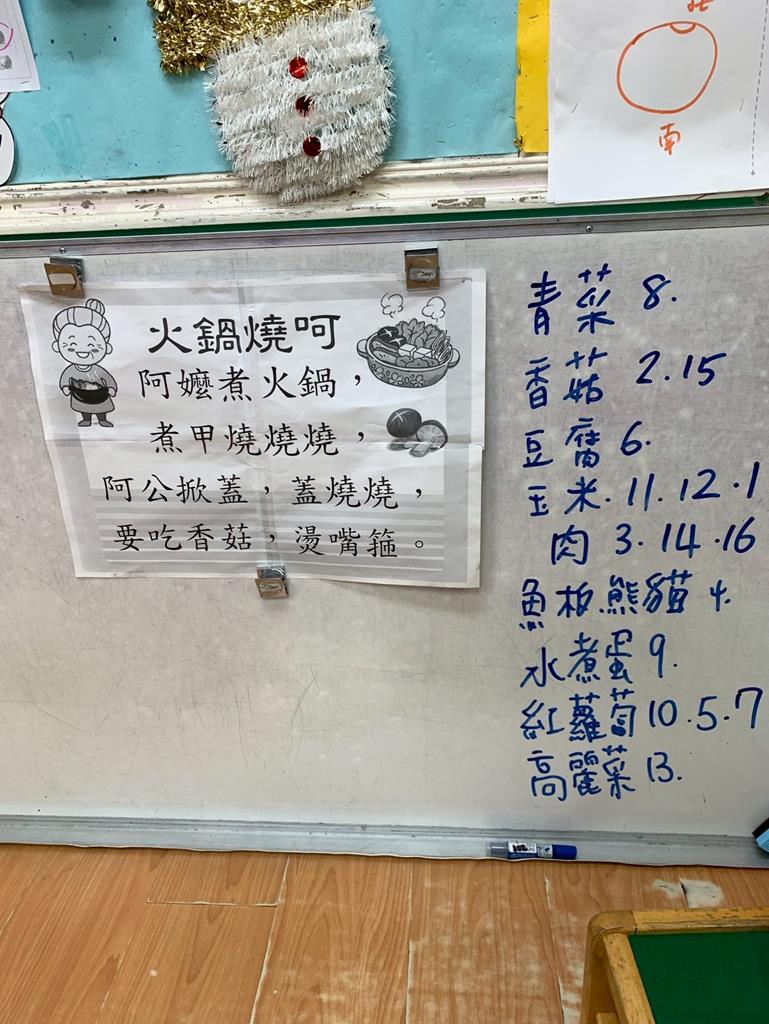 南
Jean
火鍋燒呵
阿嬤煮火鍋，
煮甲燒燒燒，
阿公掀蓋，蓋燒燒，
要吃香菇，燙嘴箍。
青菜 8.
香菇 2.15
豆腐 6.
玉米.11.12.1
肉 3.14.16
魚板熊貓 4.
水煮蛋 9.
紅蘿蔔10.5.7
高麗菜 13.